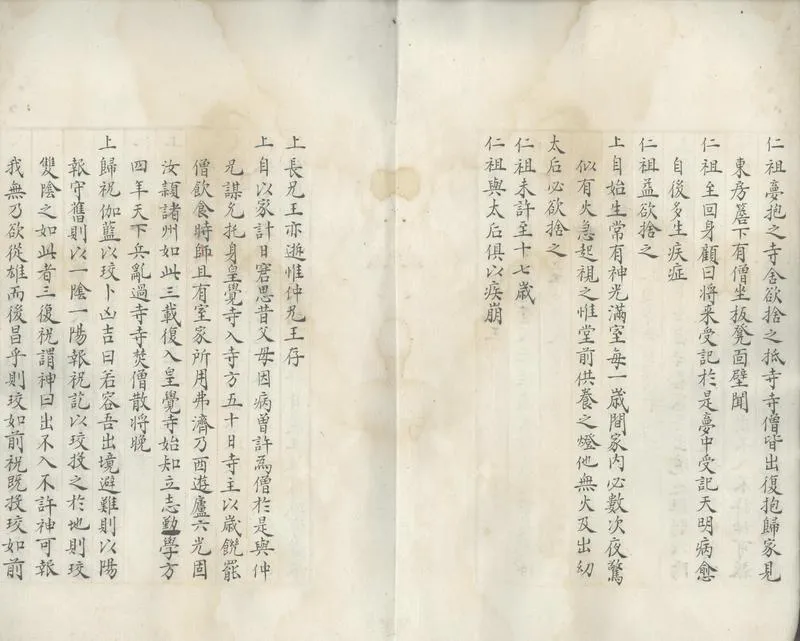 仁祖夢抱之寺舍欲捨之抵寺寺僧皆出復抱歸家見
東房簷下有僧坐板凳面壁聞
仁祖至回身顧曰將來受記於是夢中受記天明病愈
自後多生疾症
仁祖益欲捨之
上自始生常有神光滿室每一歲間家內必數次夜驚
似有火急起視之惟堂前供養之燈他無火及出幼
太后必欲捨之
仁祖未許至十七歲
仁祖與太后俱以疾崩
上長兄王亦逝惟仲兄王存
上自以家計日窘思昔父母因病曾許為僧於是與仲
兄謀允托身皇覺寺入寺方五十日寺主以歲饑罷
僧飲食將師且有室家所用弗濟乃西遊廬六光固
汝潁諸州如此三載復入皇覺寺始知立志勤學方
四年天下兵亂過寺寺焚僧散將晚
上歸祝伽藍以珓卜凶吉曰若容吾出境避難則以陽
報守舊則以一陰一陽報祝訖以珓投之於地則珓
雙陰之如此者三復祝謂神曰出不入不許神可報
我無乃欲從雄而後昌乎則珓如前祝既投珓如前